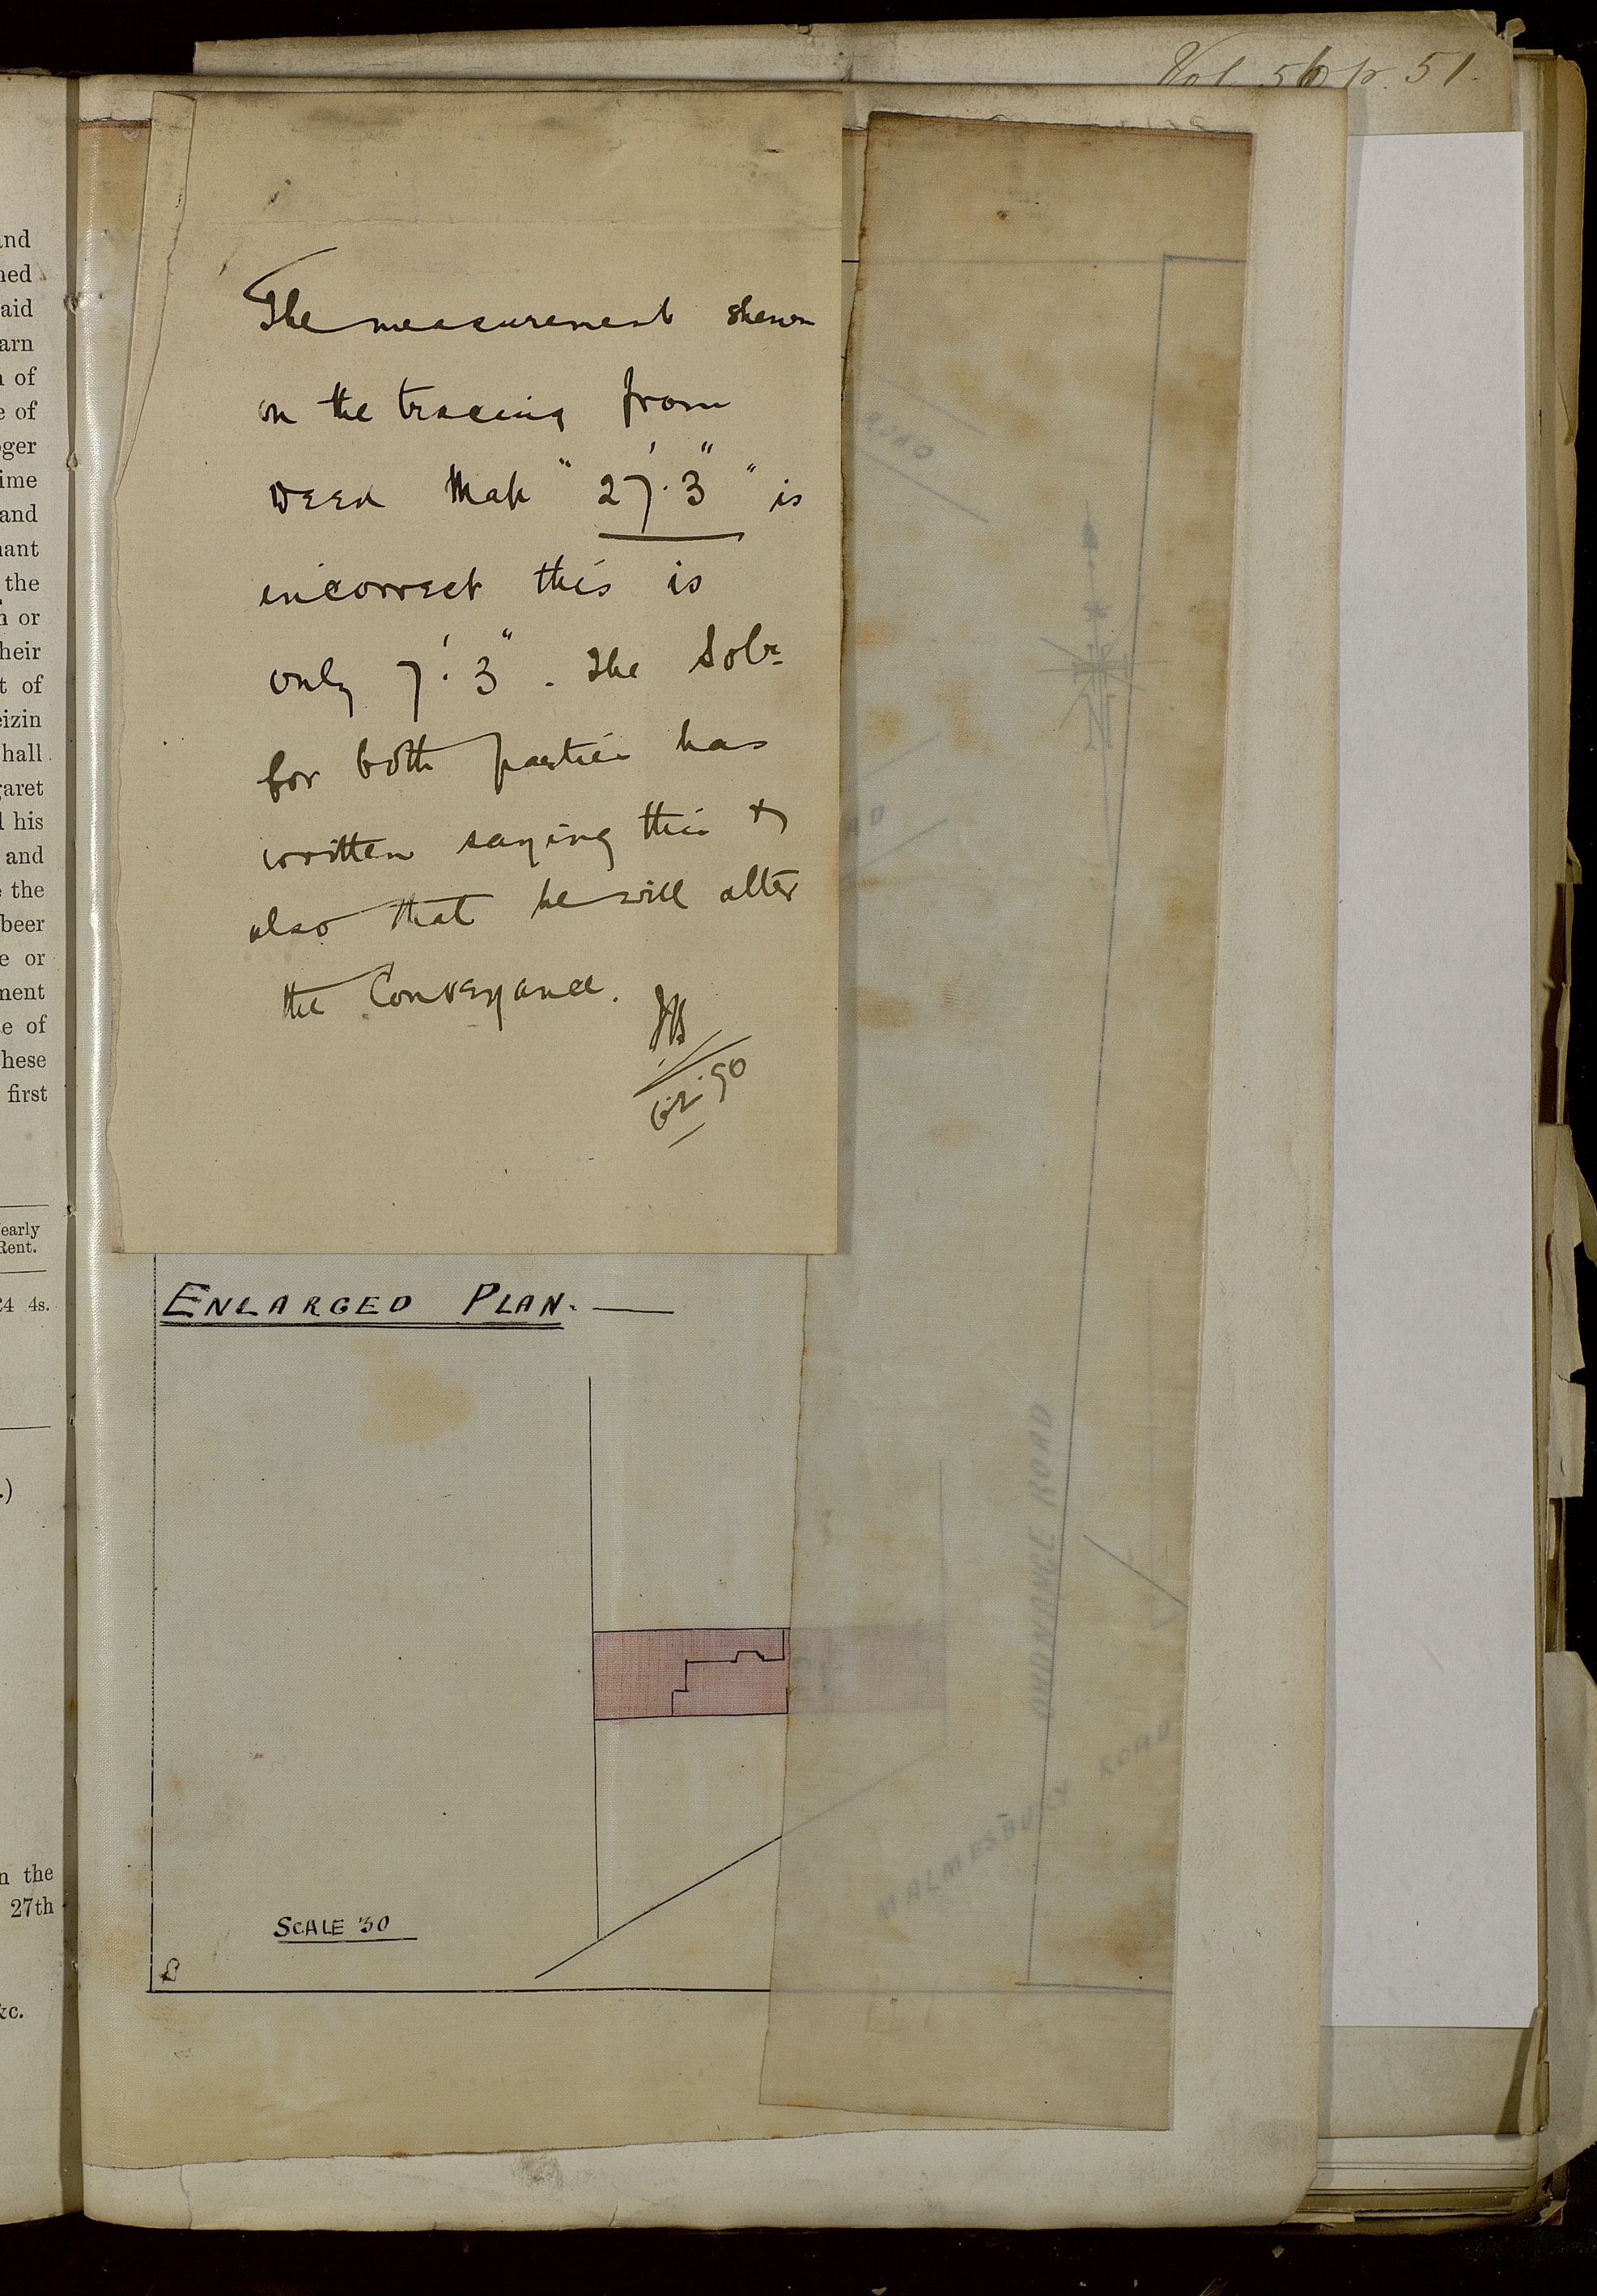 Vol 56 p. 51.
The measurement shewn
on the tracing from
Deed Map " 27'.3" " is
incorrect this is
only 7'.3". The Solr
for both parties has
written saying this &
also that he will alter
the Conveyance.
6.2.90
ENLARGED PLAN.
SCALE 30
ROAD
ORDNANCE ROAD
MALMESBURY ROAD
and
ned
aid
arn
of
e of
ger
ime
and
nant
the
or
heir
t of
eizin
hall
garet
his
and
the
beer
e or
ment
e of
hese
first
early
Rent.
£4 4s.
.)
n the
27th
&c.